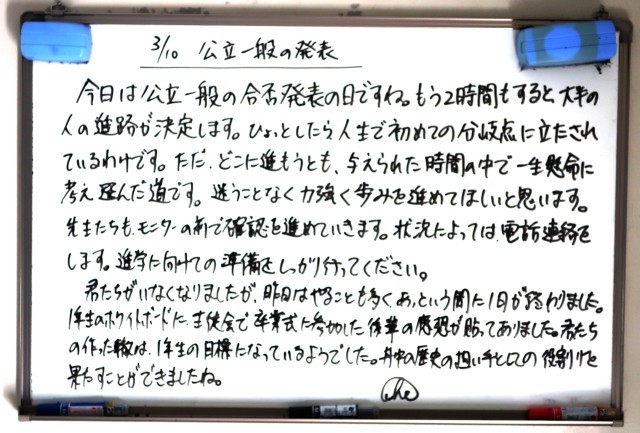 3/10 公立一般の発表
今日は公立一般の合否発表の日ですね。もう2時間もすると、大半の
人の進路が決定します。ひょっとしたら人生で初めての分岐点に立たされ
ているわけです。ただ、どこに進もうとも、与えられた時間の中で一生懸命に
考え選んだ道です。迷うことなく力強く歩みを進めてほしいと思います。
先生たちも、モニターの前で確認を進めていきます。状況によっては、電話連絡を
します。進学に向けての準備をしっかり行ってください。
君たちがいなくなりましたが、昨日はやることも多くあっという間に1日が終わりました。
1年生のホワイトボードに、生徒会で卒業式に参加した後輩の感想が貼ってありました。君たち
の作った轍は、1年生の目標になっているようでした。中の歴史の担い手としての役割りを
果たすことができましたね。